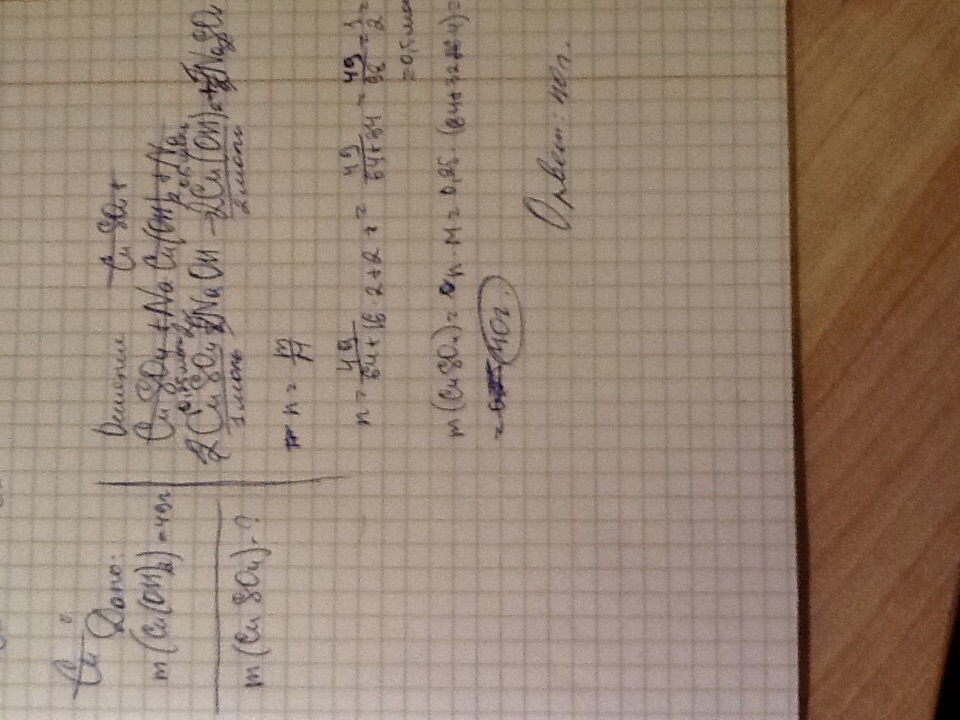 Дано:
m(Cu(OH)2) = 49г
m(CuSO4) - ?
Решение
CuSO4 +
CuSO4 + Na Cu(OH)2 + N
2CuSO4 NaOH 2Cu(OH)2 + Na2SO4
1 моль 2 моль
n = m/M
n = 49/64+16·2+2 = 49/64+34 = 49/98 = 1/2 =
= 0,5 мол
m(CuSO4) = n · M = 0,25 · (64+32+64) =
= 40г.
Ответ: 40г.